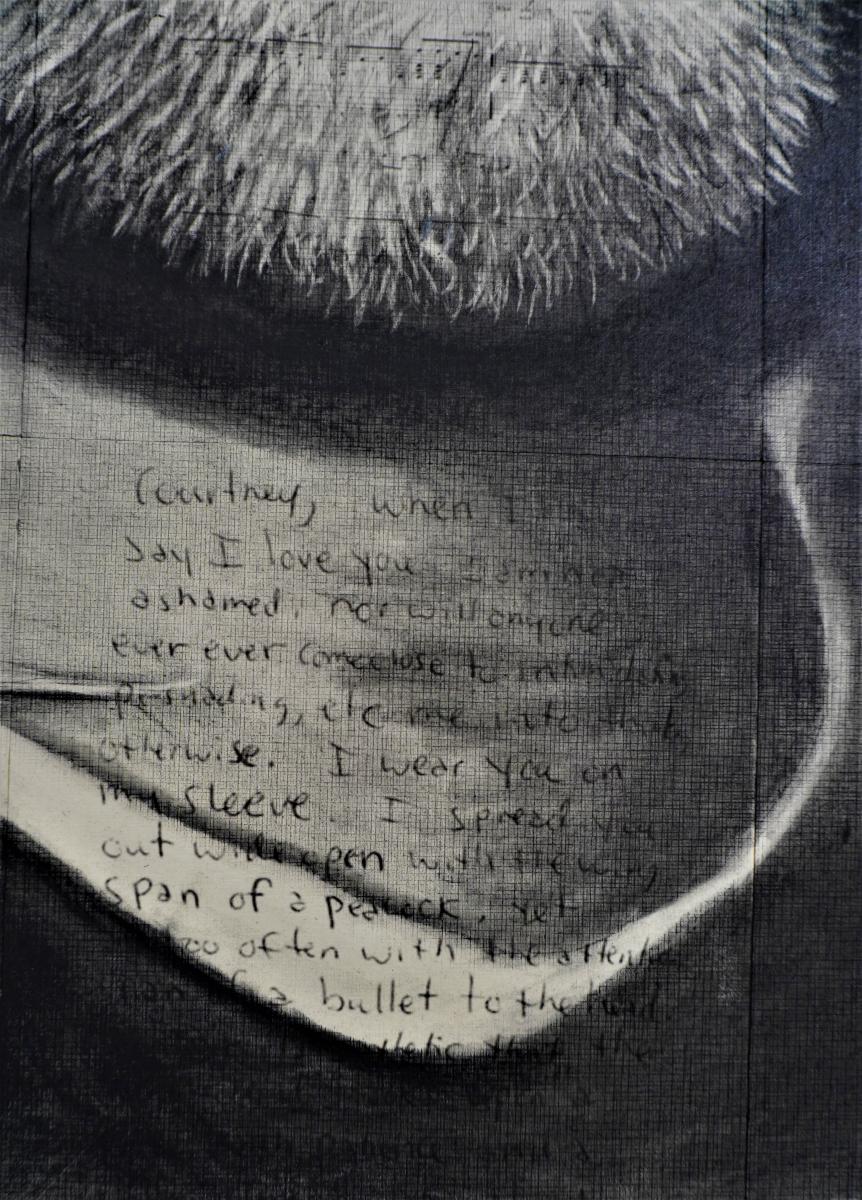 Courtney, when I
say I love you I am not
ashamed, nor will anyone
ever ever come close to intimidating,
persuading, etc me into think
otherwise. I wear you on
my sleeve. I spread you
out wide open with the wing
span of a peacock, yet
too often with the atten
tion of a bullet to the head.
that the